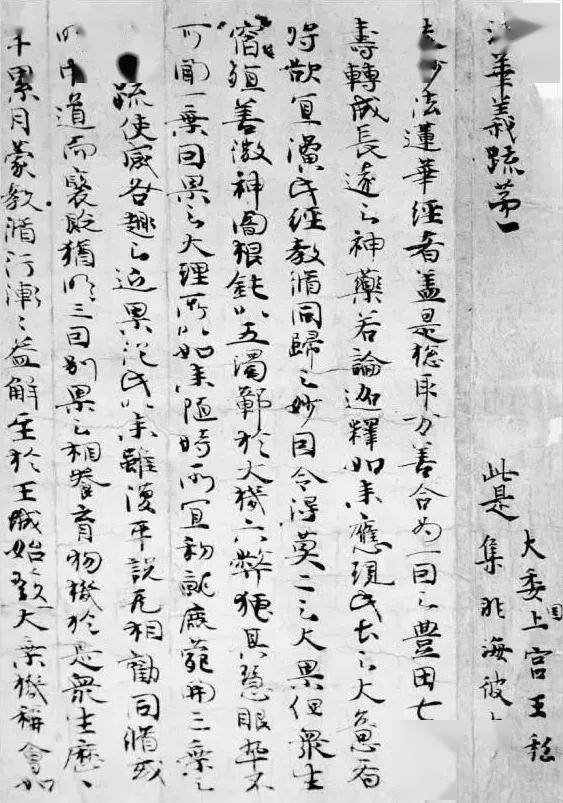 法華義疏第一
此是
大委國上宮王私
集非海彼
夫妙法蓮華經者盖是惣取万善合為一因之豊田七
壽轉成長遠之神藥若論迦釋如来應現此土之大意者
將欲宜演此經教脩同歸之妙因令得莫二之大果但衆生
宿殖善微神闇根鈍以五濁鄣於大機六弊掩其慧眼卒不
可聞一乘因果之大理所以如来隨時所宜初就鹿苑開三乘之
疏使感各趣之近果從此以来雖復平說无相勸同脩或
明中道而褒貶猶明三因別果之相養育物機於是衆生歷
年累月蒙教脩行漸〻益解至於王城始發大乘機稱會如